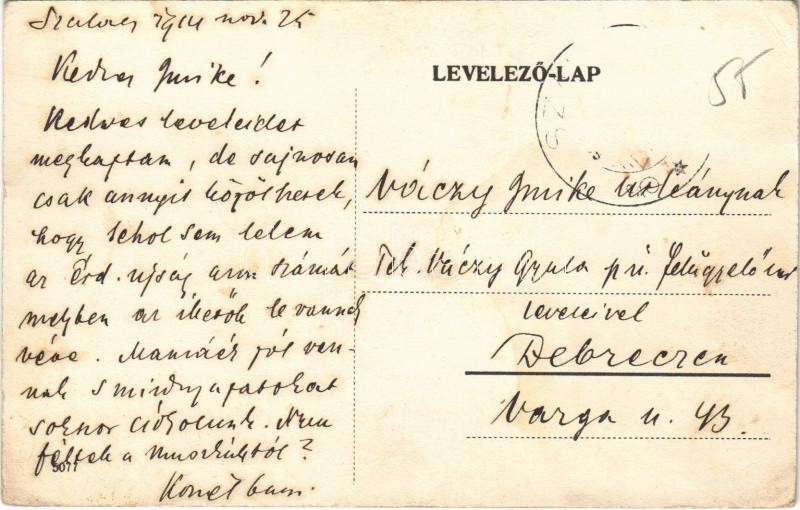 1914 nov. 25
Kedves Imike!
Kedves leveleidet
megkaptam, de sajnosan
csak annyit közölhetek,
hogy sehol sem lelem
az Érd. ujság azon számát
melyben az ikerők le vannak
véve. Mamáék jól van-
nak s mindnyájatokat
sokszor csókolunk. Nem
féltek a muszkáktól?
5077
LEVELEZŐ-LAP
55
Váczy Imike urleánynak
Tek. Váczy Gyula pü. felügyelő úr
leveleivel
Debreczen
Varga u. 43.